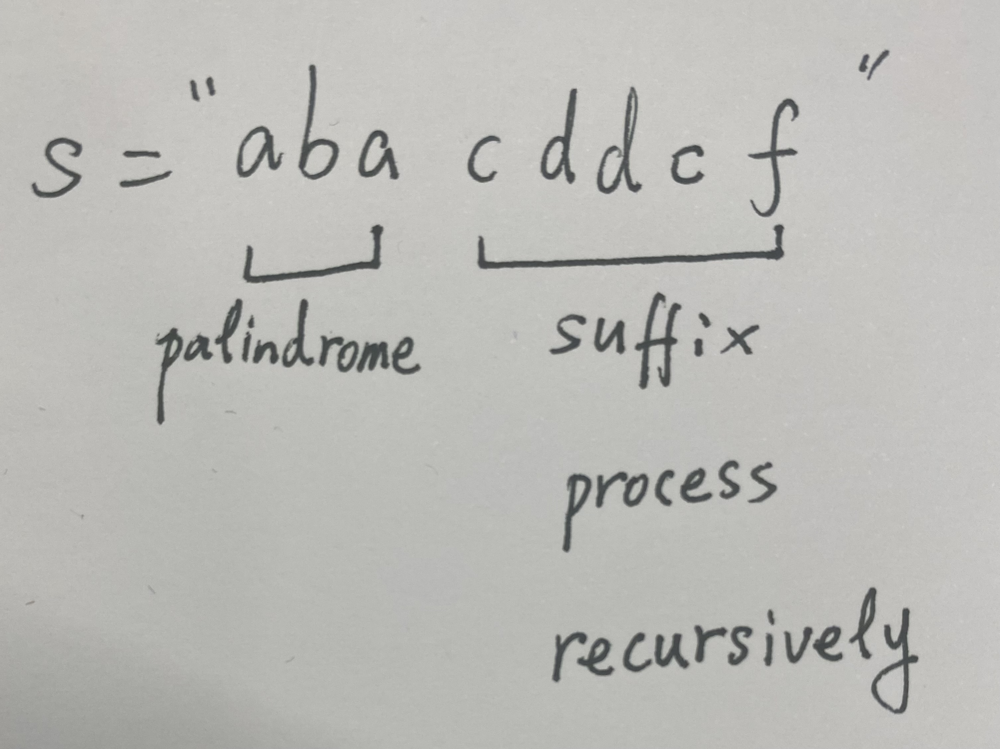 s = "aba cddcf"
palindrome suffix
process
recursively